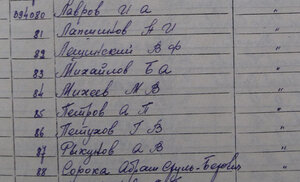 094080 Лавров И А "
81 Лапшинов А И "
82 Лещинский В Ф "
83 Михайлов Б А "
84 Михеев М В "
85 Петров А Г "
86 Петухов Г В "
87 Рыкунов А В "
88 Сорока Абрам "